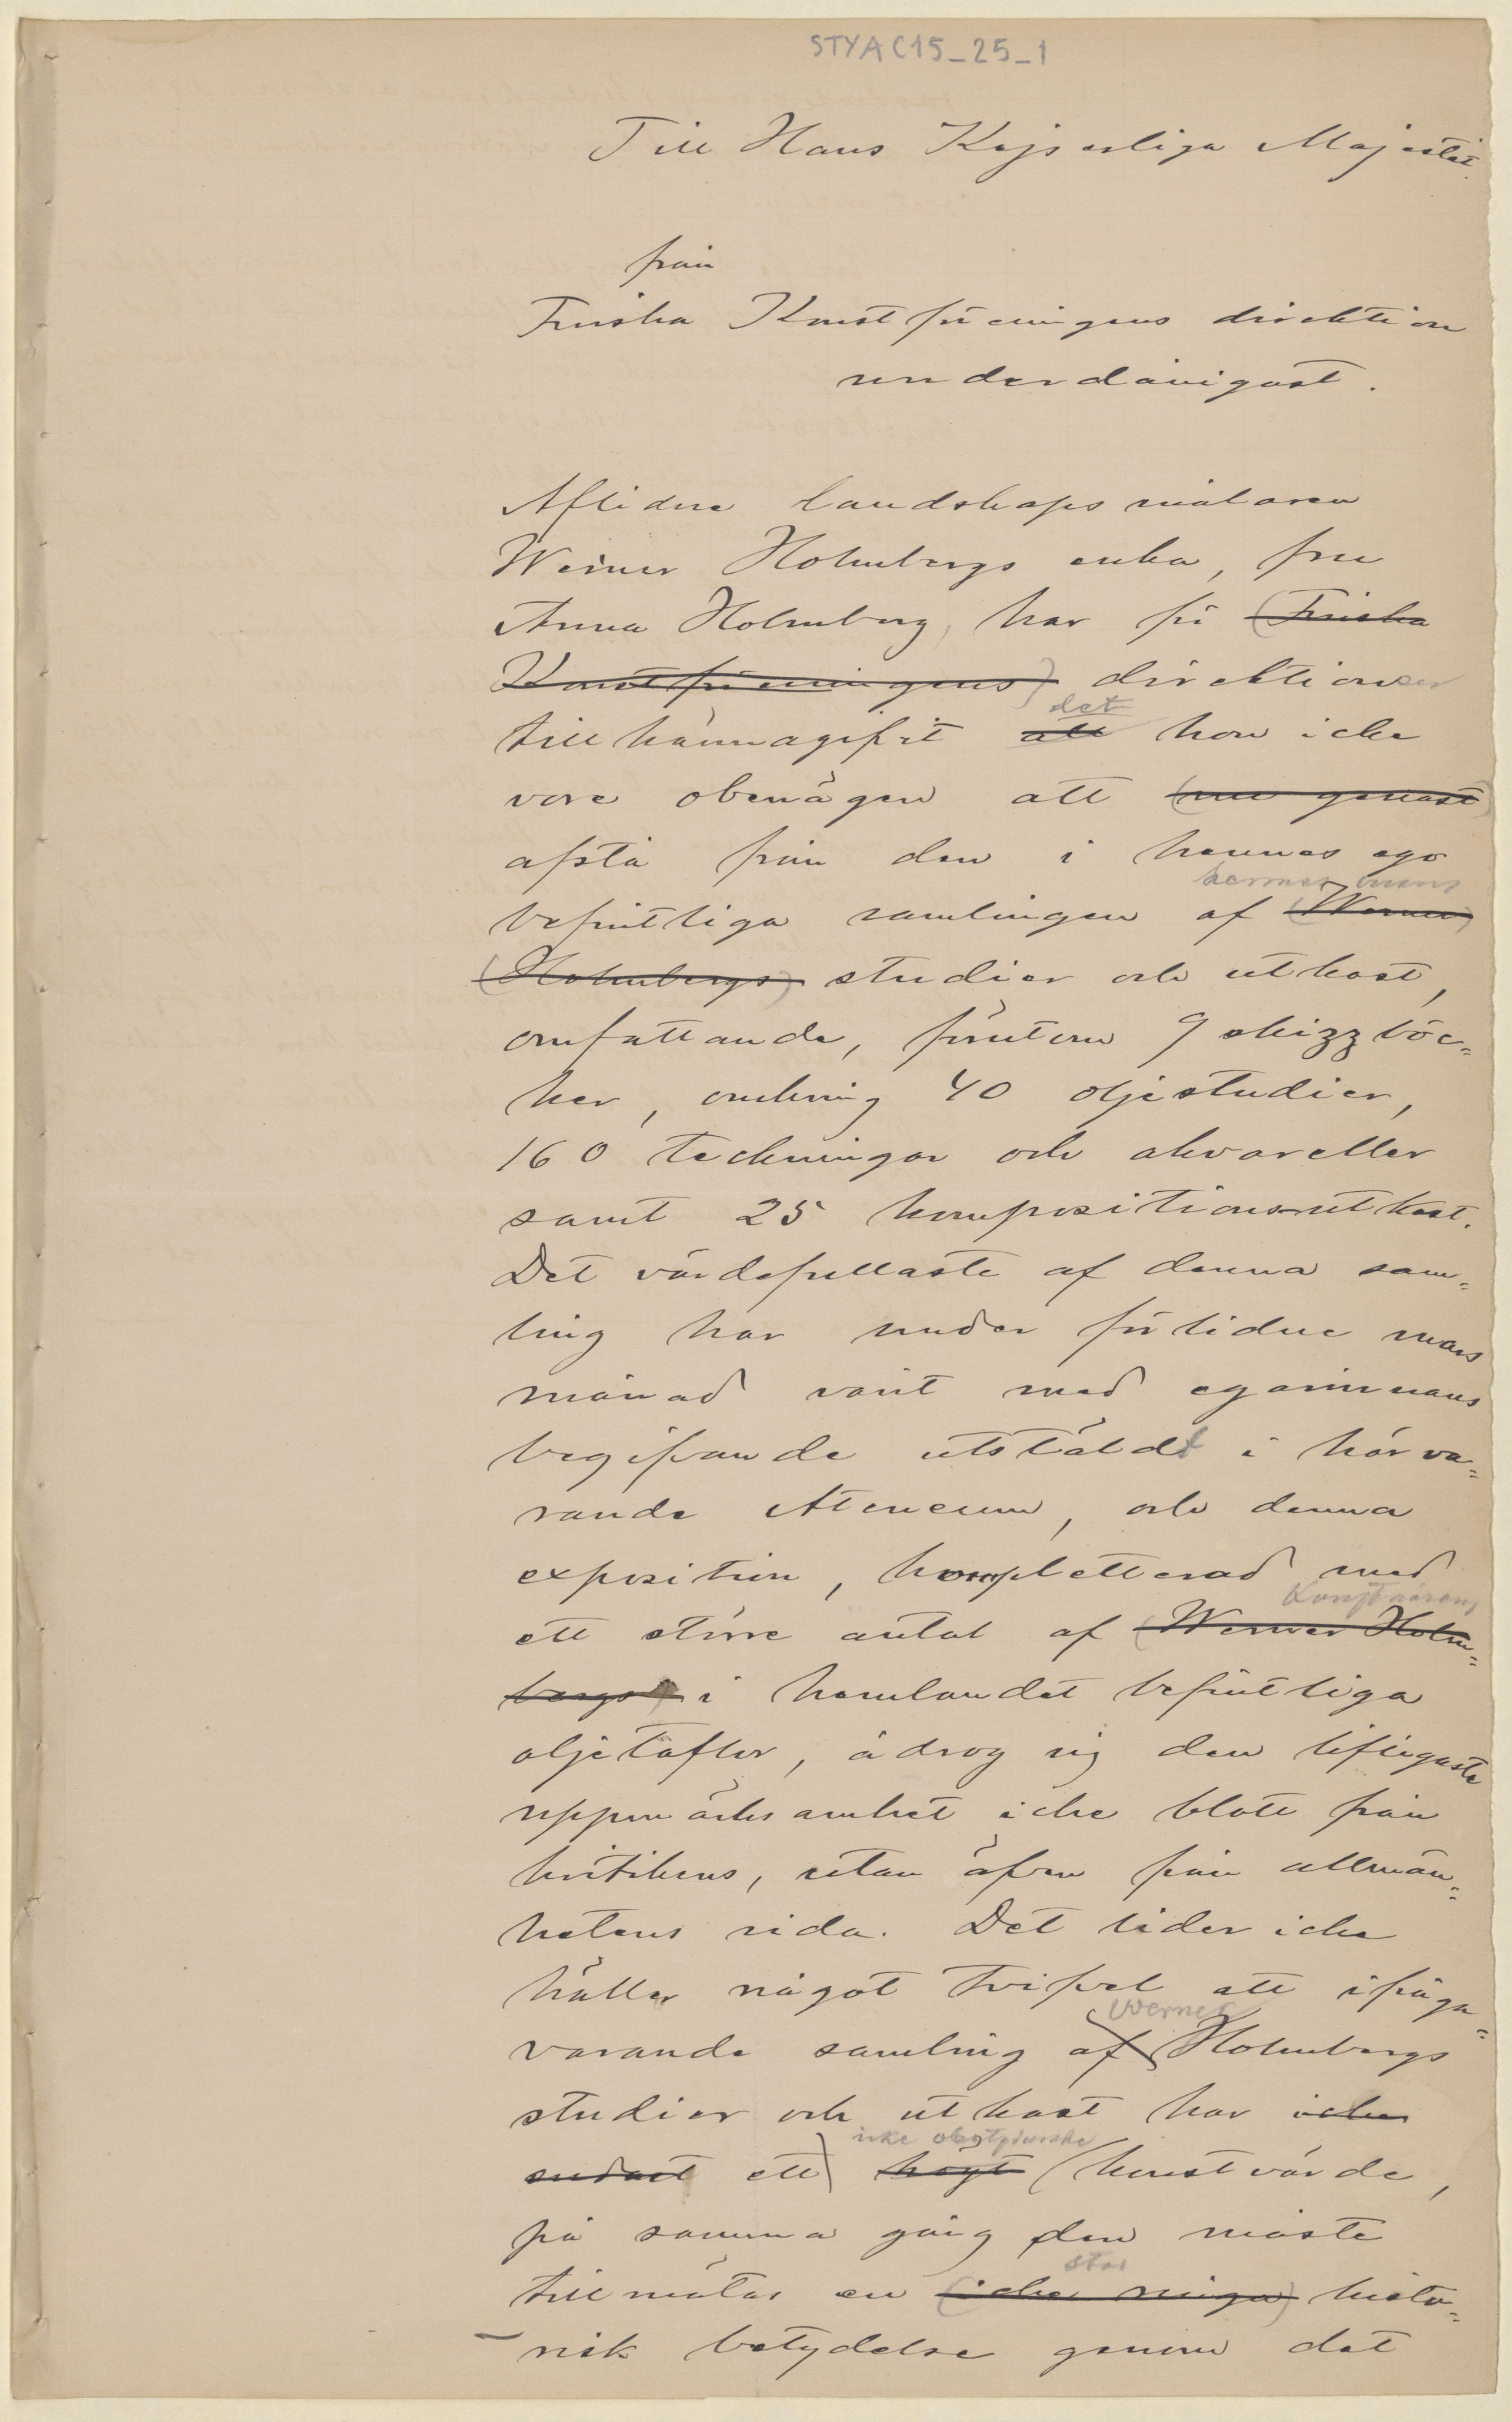 STYA C15_25_1
Till Hans Kejserliga Majestät.
från
Finska Konstföreningens direktion
underdånigast.
Aflidne landskapsmålaren
Werner Holmbergs enka, fru
Anna Holmberg, har för (Finska
Konstföreningens) direktionen
tillkännagifvit att det hon icke
vore obenägen att (nu genast)
afstå från den i hennes ego
hennes mans
befintliga samlingen af (Werner)
(Holmbergs) studier och utkast,
omfattande, förutom 9 skizzböc=
ker, omkring 40 oljestudier,
160 teckningar och akvareller
samt 25 kompositionsutkast.
Det värdefullaste af denna sam=
ling har under förlidne mars
månad varit med egarinnans
begifvande utstäldt i härva=
rande Ateneum, och denna
exposition, kompletterad med
Konstnärens
ett större antal af (Werner Holm=
bergs) i hemlandet befintliga
oljetaflor, ådrog sig den lifligaste
uppmärksamhet icke blott från
kritikens, utan äfven från allmän=
hetens sida. Det lider icke
häller något tvifvel att ifråga=
Werner
varande samling af Holmbergs
studier och utkast har icke
icke obetydande
endast ett högt konstvärde,
på samma gång den måste
stor
tillmätas en (icke ringa) histo=
risk betydelse genom det